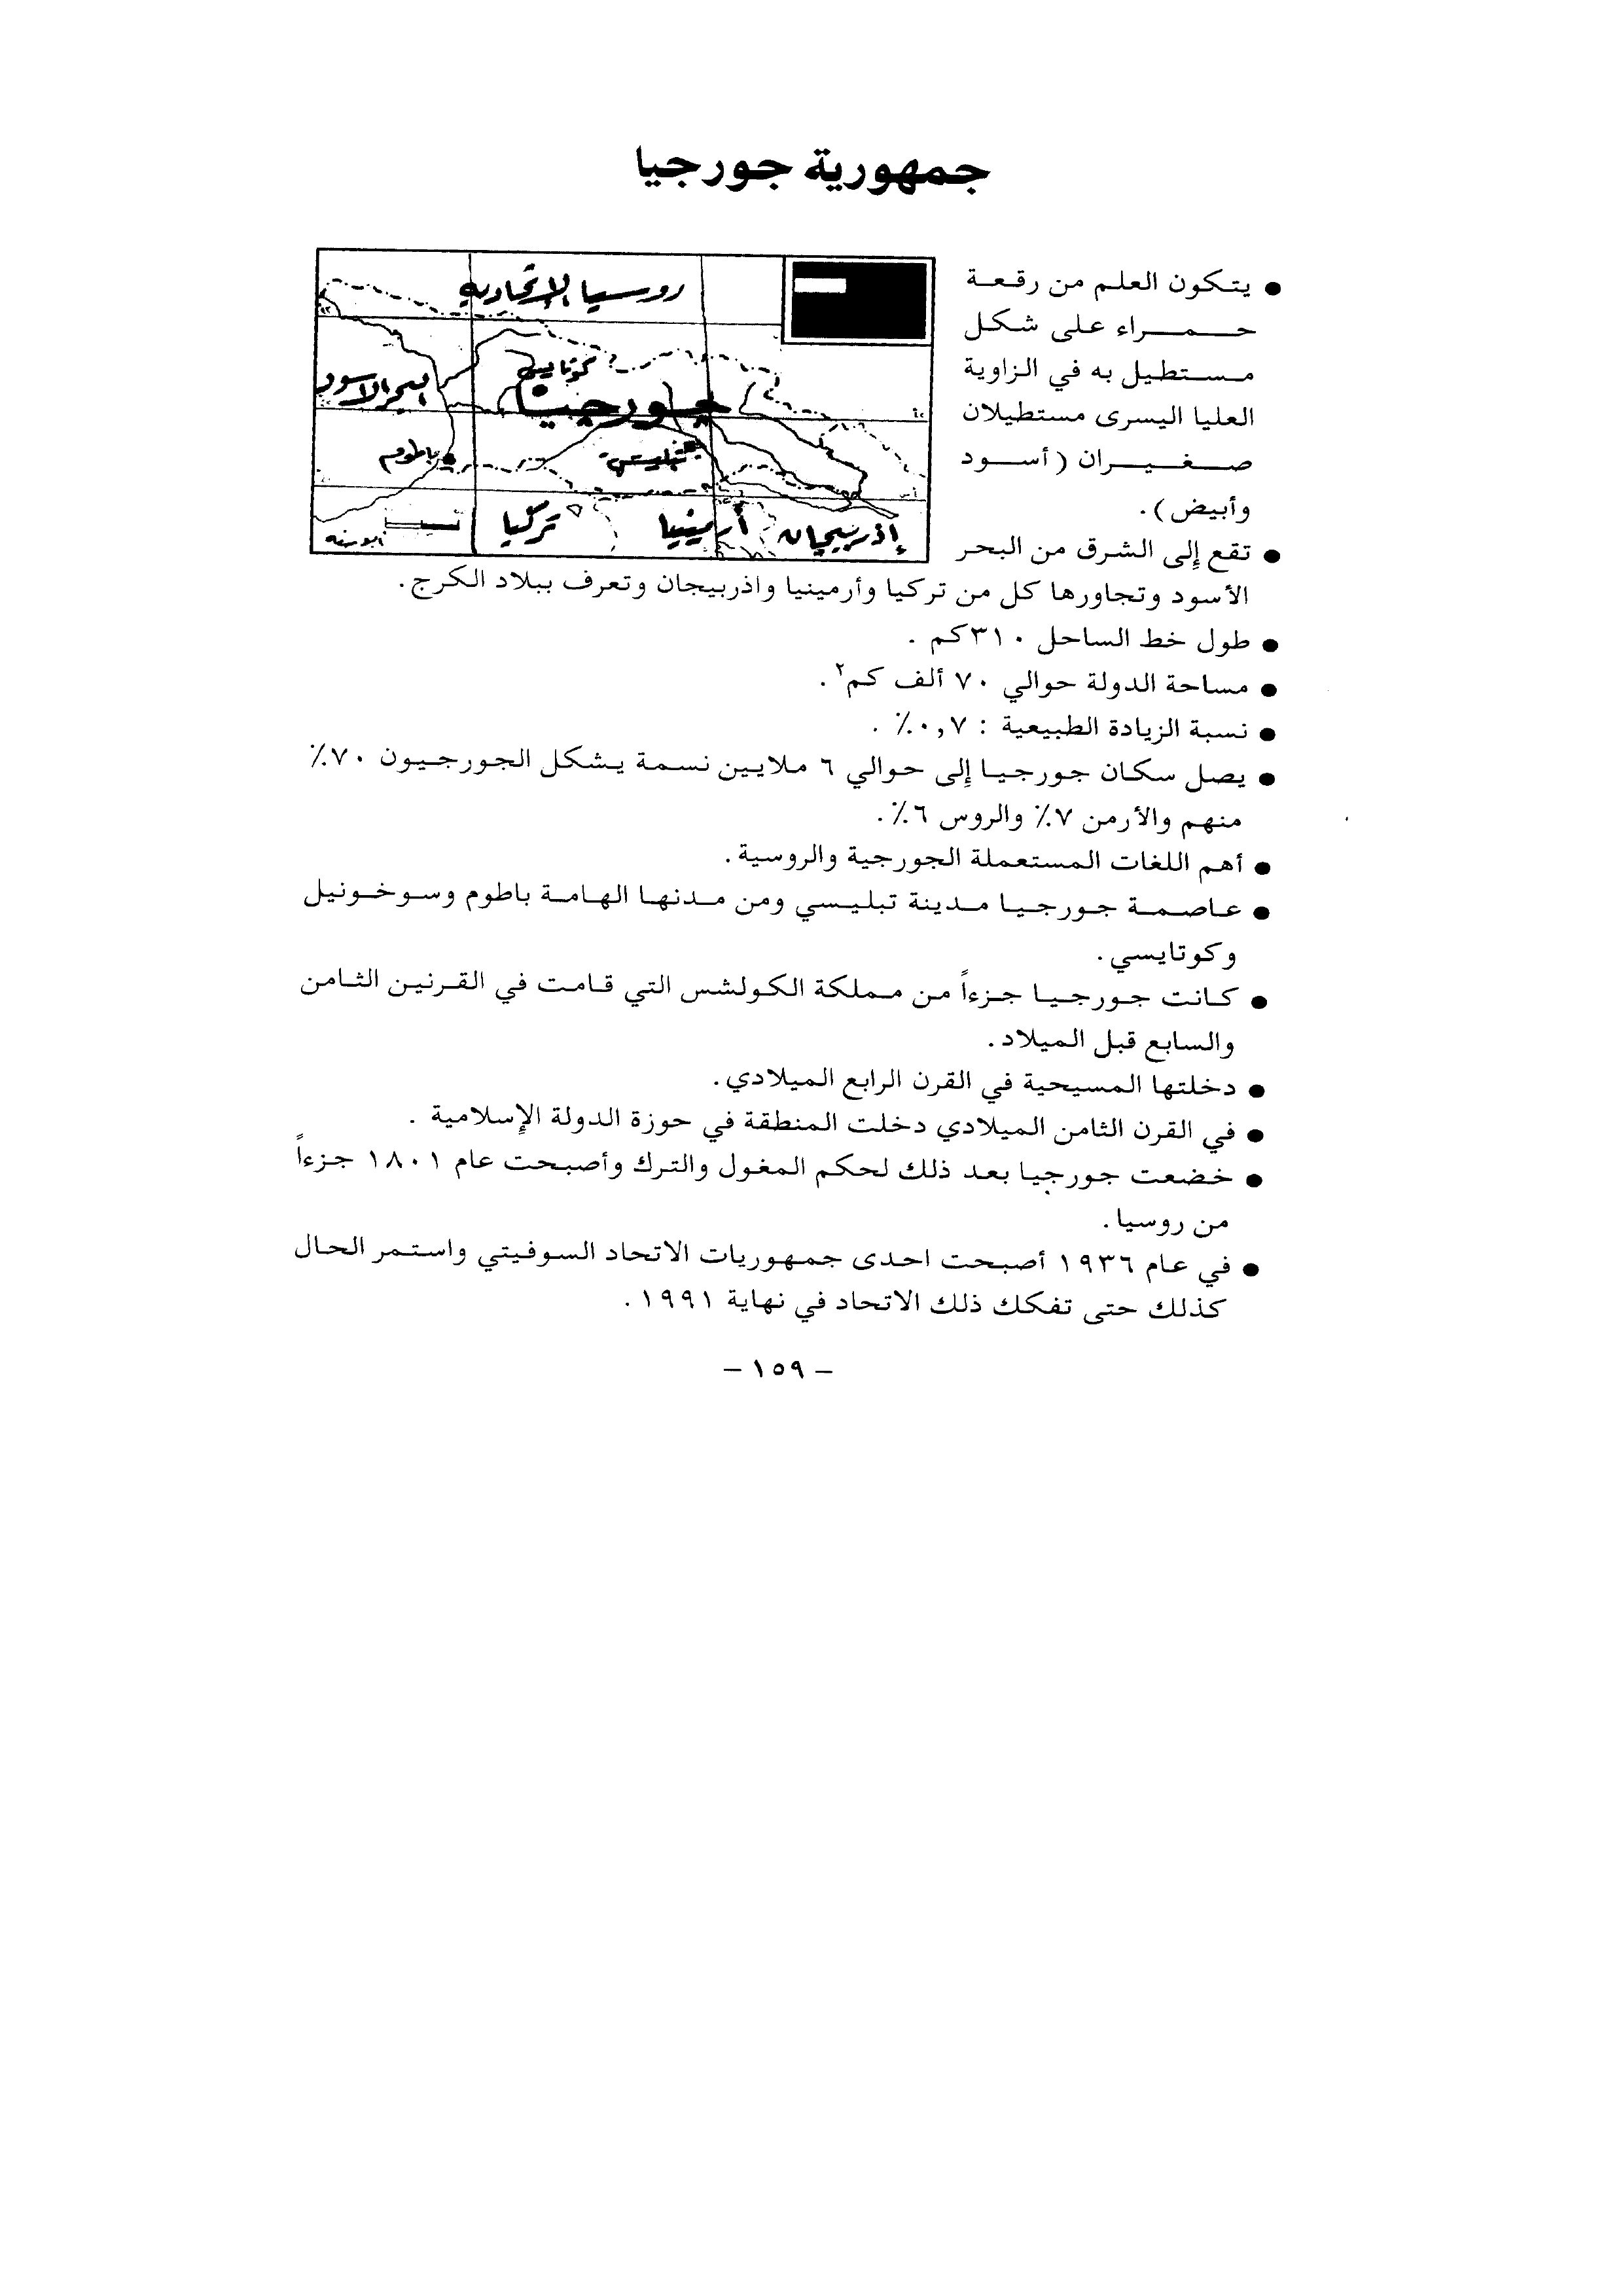 جمهورية جورجيا
● يتكون العلم من رقعة
حمراء على شكل
مستطيل به في الزاوية
العليا اليسرى مستطيلان
صغيران (أسود
وأبيض).
روسيا الإتحادية
كوتايسي
البحر الأسود
جورجيا
باطوم
تبليسي
تركيا
أرمينيا
إذربيجان
● تقع إلى الشرق من البحر
الأسود وتجاورها كل من تركيا وأرمينيا واذربيجان وتعرف ببلاد الكرج.
● طول خط الساحل ٣١٠كم .
● مساحة الدولة حوالي ٧٠ ألف كم٢.
● نسبة الزيادة الطبيعية : ٠,٧٪ .
● يصل سكان جورجيا إلى حوالي ٦ ملايين نسمة يشكل الجورجيون ٧٠٪
منهم والأرمن ٧٪ والروس ٦٪.
● أهم اللغات المستعملة الجورجية والروسية.
● عاصمة جورجيا مدينة تبليسي ومن مدنها الهامة باطوم وسوخونيل
وكوتايسي.
● كانت جورجيا جزءاً من مملكة الكولشس التي قامت في القرنين الثامن
والسابع قبل الميلاد.
● دخلتها المسيحية في القرن الرابع الميلادي.
● في القرن الثامن الميلادي دخلت المنطقة في حوزة الدولة الإسلامية .
● خضعت جورجيا بعد ذلك لحكم المغول والترك وأصبحت عام ١٨٠١ جزءاً
من روسيا.
● في عام ١٩٣٦ أصبحت احدى جمهوريات الاتحاد السوفيتي واستمر الحال
كذلك حتى تفكك ذلك الاتحاد في نهاية ١٩٩١.
– ١٥٩ –